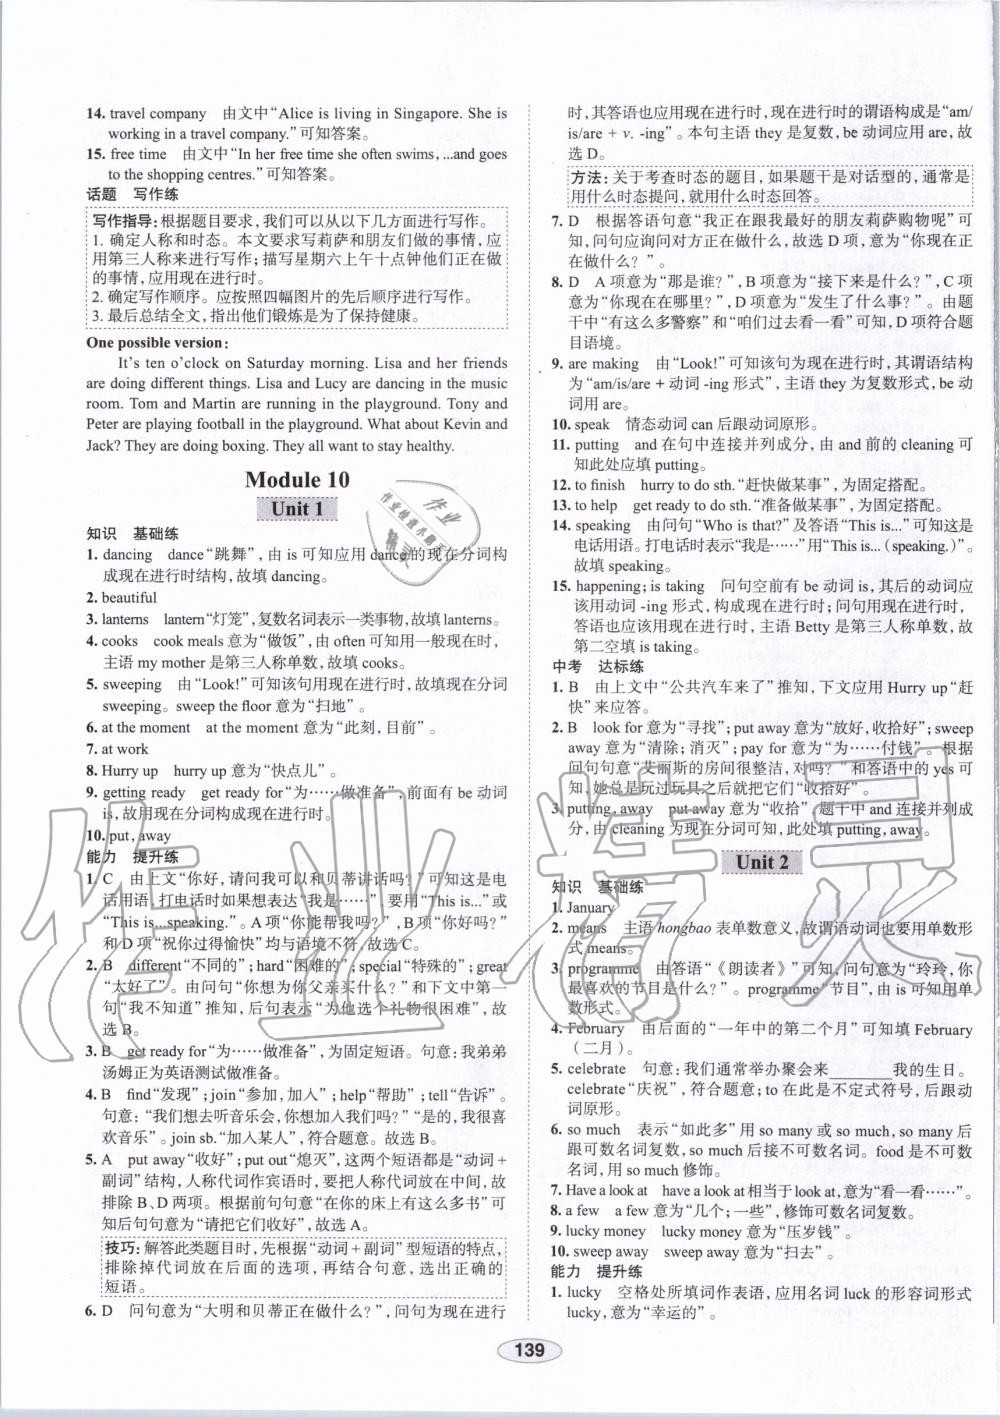 14. travel company　由文中“Alice is living in Singapore. She is
working in a travel company.”可知答案。
15. free time　由文中“In her free time she often swims, ...and goes
to the shopping centres.”可知答案。
话题　写作练
写作指导:根据题目要求,我们可以从以下几方面进行写作。
1. 确定人称和时态。本文要求写莉萨和朋友们做的事情,应
用第三人称来进行写作;描写星期六上午十点钟他们正在做
的事情,应用现在进行时。
2. 确定写作顺序。应按照四幅图片的先后顺序进行写作。
3. 最后总结全文,指出他们锻炼是为了保持健康。
One possible version:
It's ten o'clock on Saturday morning. Lisa and her friends
are doing different things. Lisa and Lucy are dancing in the music
room. Tom and Martin are running in the playground. Tony and
Peter are playing football in the playground. What about Kevin and
Jack? They are doing boxing. They all want to stay healthy.
Module 10
Unit 1
知识　基础练
1. dancing　dance“跳舞”,由 is 可知应用 dance的现在分词构
成现在进行时结构,故填 dancing。
2. beautiful
3. lanterns　lantern“灯笼”,复数名词表示一类事物,故填 lanterns。
4. cooks　cook meals 意为“做饭”,由 often 可知用一般现在时,
主语 my mother 是第三人称单数,故填 cooks。
5. sweeping　由“Look!”可知该句用现在进行时,故填现在分词
sweeping。sweep the floor 意为“扫地”。
6. at the moment　at the moment 意为“此刻,目前”。
7. at work
8. Hurry up　hurry up 意为“快点儿”。
9. getting ready　get ready for“为……做准备”,前面有 be 动词
is,故用现在分词构成现在进行时。
10. put, away
能力　提升练
1. C　由上文“你好,请问我可以和贝蒂讲话吗?”可知这是电
话用语,打电话时如果想表达“我是……”要用“This is...”或
“This is...speaking.”。A 项“你能帮我吗?”,B 项“你好吗?”
和 D 项“祝你过得愉快”均与语境不符,故选 C。
2. B　different“不同的”;hard“困难的”;special“特殊的”;great
“太好了”。由问句“你想为你父亲买什么?”和下文中第一
句“我不知道”推知,后句表示“为他选个礼物很困难”,故
选 B。
3. B　get ready for“为……做准备”,为固定短语。句意:我弟弟
汤姆正为英语测试做准备。
4. B　find“发现”;join“参加,加入”;help“帮助”;tell“告诉”。
句意:“我们想去听音乐会,你想加入我们吗?”“是的,我很喜
欢音乐”。join sb.“加入某人”,符合题意。故选 B。
5. A　put away“收好”;put out“熄灭”,这两个短语都是“动词 +
副词”结构,人称代词作宾语时,要把人称代词放在中间,故
排除 B、D 两项。根据前句句意“在你的床上有这么多书”可
知后句句意为“请把它们收好”,故选 A。
技巧:解答此类题目时,先根据“动词 + 副词”型短语的特点,
排除掉代词放在后面的选项,再结合句意,选出正确的
短语。
6. D　问句意为“大明和贝蒂正在做什么?”,问句为现在进行
时,其答语也应用现在进行时,现在进行时的谓语构成是“am/
is/are + v. -ing”。本句主语 they 是复数,be 动词应用 are,故
选 D。
方法:关于考查时态的题目,如果题干是对话型的,通常是
用什么时态提问,就用什么时态回答。
7. D　根据答语句意“我正在跟我最好的朋友莉萨购物呢”可
知,问句应询问对方正在做什么,故选 D 项,意为“你现在正
在做什么?”。
8. D　A 项意为“那是谁?”,B 项意为“接下来是什么?”,C 项
意为“你现在在哪里?”,D 项意为“发生了什么事?”。由题
干中“有这么多警察”和“咱们过去看一看”可知,D 项符合题
目语境。
9. are making　由“Look!”可知该句为现在进行时,其谓语结构
为“am/is/are + 动词 -ing 形式”,主语 they 为复数形式,be 动
词用 are。
10. speak　情态动词 can 后跟动词原形。
11. putting　and 在句中连接并列成分,由 and 前的 cleaning 可
知此处应填 putting。
12. to finish　hurry to do sth.“赶快做某事”,为固定搭配。
13. to help　get ready to do sth.“准备做某事”,为固定搭配。
14. speaking　由问句“Who is that?”及答语“This is...”可知这是
电话用语。打电话时表示“我是……”用“This is... (speaking.)”。
故填 speaking。
15. happening; is taking　问句空前有 be 动词 is,其后的动词应
该用动词 -ing 形式,构成现在进行时;问句用现在进行时,
答语也应用现在进行时,主语 Betty 是第三人称单数,故
第二空填 is taking。
中考　达标练
1. B　由上文中“公共汽车来了”推知,下文应用 Hurry up“赶
快”来应答。
2. B　look for 意为“寻找”;put away 意为“放好,收拾好”;sweep
away 意为“清除;消灭”;pay for 意为“为……付钱”。根据
问句句意“艾丽斯的房间很整洁,对吗?”和答语中的 yes 可
知,她总是玩过玩具之后就把它们“收拾好”。
3. putting, away　put away 意为“收拾”题干中 and 连接并列成
分,由 cleaning 为现在分词可知,此处填 putting, away。
Unit 2
知识　基础练
1. January
2. means　主语 hongbao 表单数意义,故谓语动词也要用单数形
式 means。
3. programme　由答语“《朗读者》”可知,问句意为“玲玲,你
最喜欢的节目是什么?”。programme“节目”,由 is 可知用单
数形式。
4. February　由后面的“一年中的第二个月”可知填 February
(二月)。
5. celebrate　句意:我们通常举办聚会来________我的生日。
celebrate“庆祝”,符合题意;to 在此是不定式符号,后跟动
词原形。
6. so much　表示“如此多”用 so many 或 so much,so many 后
跟可数名词复数,so much 后接不可数名词。food 是不可数
名词,用 so much 修饰。
7. Have a look at　have a look at 相当于 look at,意为“看一看……”。
8. a few　a few 意为“几个;一些”,修饰可数名词复数。
9. lucky money　lucky money 意为“压岁钱”。
10. sweep away　sweep away 意为“扫去”。
能力　提升练
1. lucky　空格处所填词作表语,应用名词 luck 的形容词形式
lucky,意为“幸运的”。
139
作业精灵